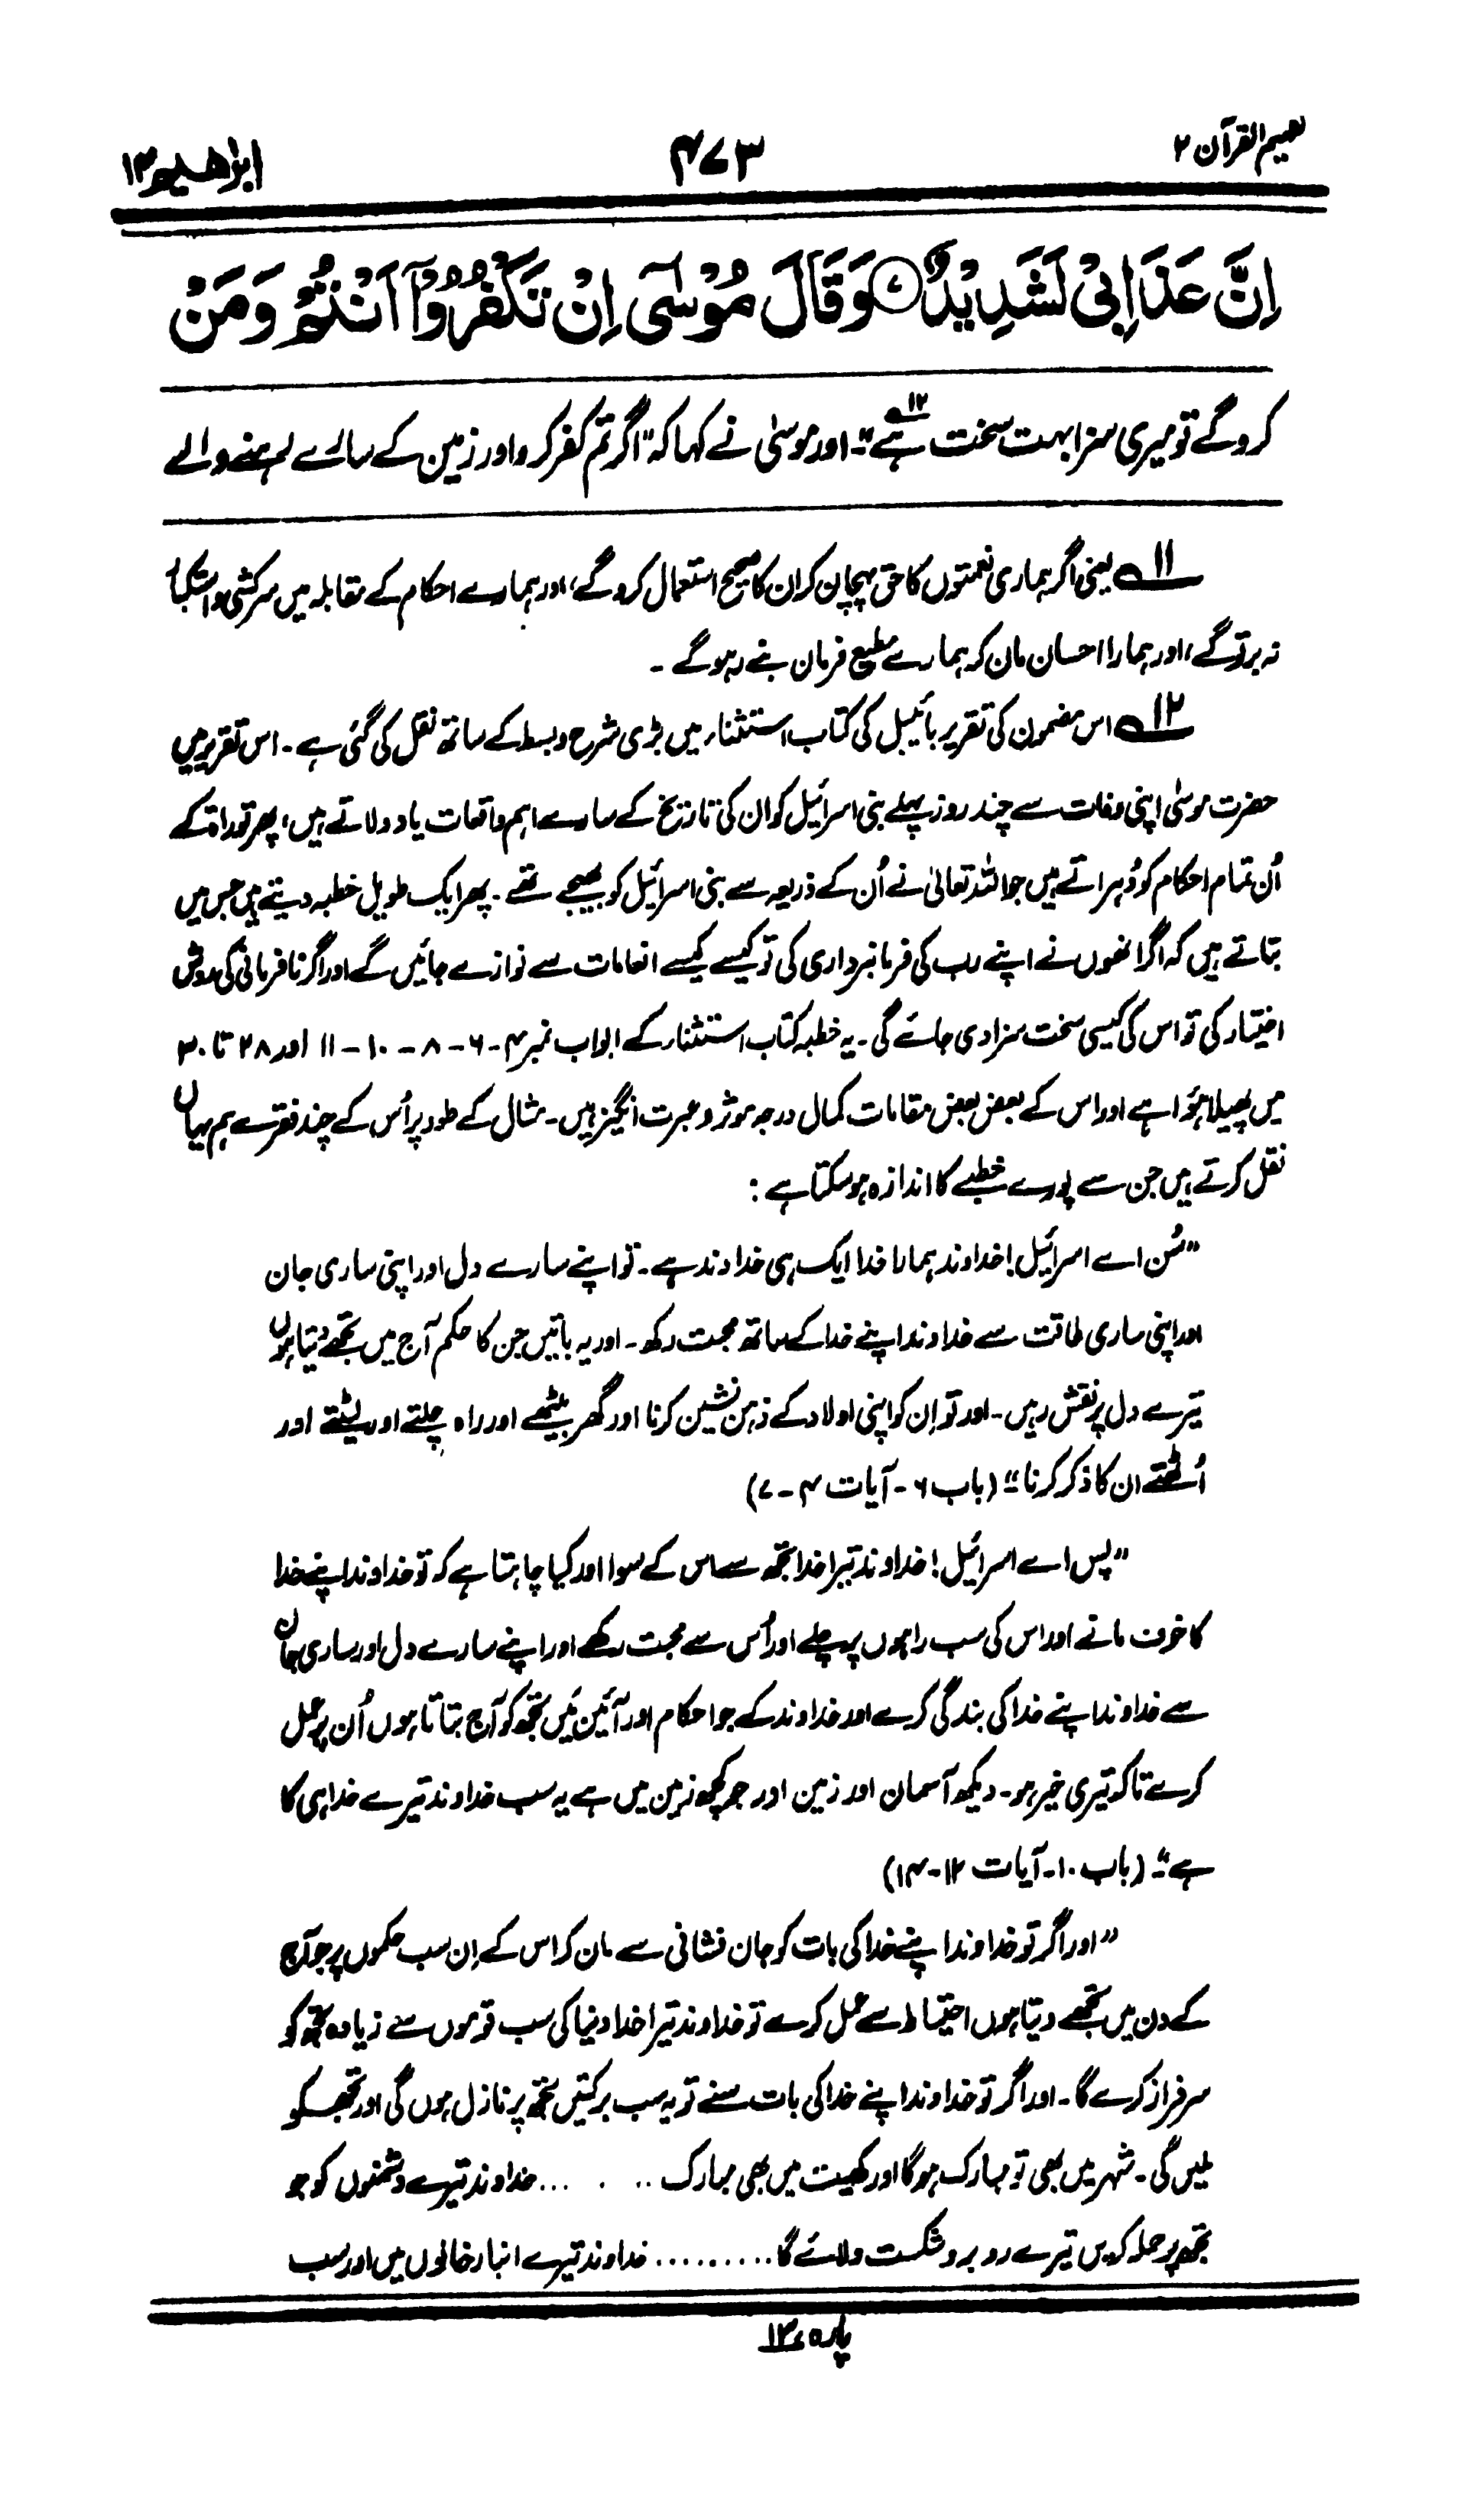 تفہیم القرآن ۲
۴۷۳
ابرٰھیم ۱۴
اِنَّ عَذَابِیْ لَشَدِیْدٌ ۷ وَقَالَ مُوْسٰٓی اِنْ تَکْفُرُوْٓا اَنْتُمْ وَمَنْ
کرو گے تو میری سزا بہت سخت ہے۱۲"۔ اور موسٰی نے کہا کہ "اگر تم کفر کرو اور زمین کے سارے رہنے والے
۱۱ یعنی اگر ہماری نعمتوں کا حق پہچان کر ان کا صحیح استعمال کرو گے، اور ہمارے احکام کے مقابلہ میں سرکشی و استکبار
نہ برتو گے، اور ہمارا احسان مان کر ہمارے مطیع فرمان بنے رہو گے۔
۱۲ اس مضمون کی تقریر بائیبل کی کتاب استثناء میں بڑی شرح و بسط کے ساتھ نقل کی گئی ہے۔ اس تقریر میں
حضرت موسٰی اپنی وفات سے چند روز پہلے بنی اسرائیل کو ان کی تاریخ کے سارے اہم واقعات یاد دلاتے ہیں، پھر توراۃ کے
اُن تمام احکام کو دُہراتے ہیں جو اللہ تعالیٰ نے اُن کے ذریعہ سے بنی اسرائیل کو بھیجے تھے۔ پھر ایک طویل خطبہ دیتے ہیں جس میں
بتاتے ہیں کہ اگر انھوں نے اپنے رب کی فرمانبرداری کی تو کیسے کیسے انعامات سے نوازے جائیں گے اور اگر نافرمانی کی روش
اختیار کی تو اس کی کیسی سخت سزا دی جائے گی۔ یہ خطبہ کتاب استثناء کے ابواب نمبر ۴-۶-۸-۱۰-۱۱ اور ۲۸ تا ۳۰
میں پھیلا ہوا ہے اور اس کے بعض بعض مقامات کمال درجہ موثر و عبرت انگیز ہیں۔ مثال کے طور پر اُس کے چند فقرے ہم یہاں
نقل کرتے ہیں جن سے پورے خطبے کا اندازہ ہو سکتا ہے:
"سُن اے اسرائیل! خداوند ہمارا خدا ایک ہی خداوند ہے۔ تو اپنے سارے دل اور اپنی ساری جان
اور اپنی ساری طاقت سے خداوند اپنے خدا کے ساتھ محبت رکھ۔ اور یہ باتیں جن کا حکم آج میں تجھے دیتا ہوں
تیرے دل پر نقش رہیں۔ اور تو اِن کو اپنی اولاد کے ذہن نشین کرنا اور گھر بیٹھے اور راہ چلتے اور لیٹتے اور
اُٹھتے ان کا ذکر کرنا"۔ (باب ۶ - آیات ۴-۷)
"پس اے اسرائیل! خداوند تیرا خدا تجھ سے اس کے سوا اور کیا چاہتا ہے کہ تو خداوند اپنے خدا
کا خوف مانے اور اس کی سب راہوں پر چلے اور اُس سے محبت رکھے اور اپنے سارے دل اور ساری جان
سے خداوند اپنے خدا کی بندگی کرے اور خداوند کے جو احکام اور آئین مَیں تجھ کو آج بتاتا ہوں اُن پر عمل
کرے تاکہ تیری خیر ہو۔ دیکھ آسمان اور زمین اور جو کچھ زمین میں ہے یہ سب خداوند تیرے خدا ہی کا
ہے"۔ (باب ۱۰ - آیات ۱۲-۱۴)
"اور اگر تو خداوند اپنے خدا کی بات کو جان فشانی سے مان کر اس کے اِن سب حکموں پر جو آج
کے دن میں تجھے دیتا ہوں احتیاط سے عمل کرے تو خداوند تیرا خدا دنیا کی سب قوموں سے زیادہ تجھ کو
سرفراز کرے گا۔ اور اگر تو خداوند اپنے خدا کی بات سنے تو یہ سب برکتیں تجھ پر نازل ہوں گی اور تجھ کو
ملیں گی۔ شہر میں بھی تو مبارک ہوگا اور کھیت میں بھی مبارک . . . . . . خداوند تیرے دشمنوں کو جو
تجھ پر حملہ کریں تیرے روبرو شکست دلائے گا......... خداوند تیرے انبار خانوں میں اور سب
پارہ ۱۳